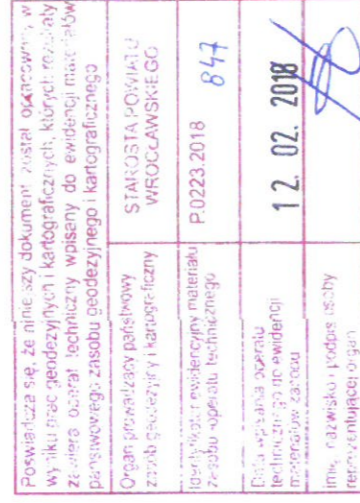 Poświadcza się, że niniejszy dokument został opracowany w
wyniku prac geodezyjnych i kartograficznych, których rezultaty
zawiera operat techniczny wpisany do ewidencji materiałów
państwowego zasobu geodezyjnego i kartograficznego
Organ prowadzący państwowy
zasób geodezyjny i kartograficzny
STAROSTA POWIATU
WROCŁAWSKIEGO
Identyfikator ewidencyjny materiału
zasobu - operatu technicznego
P.0223.2018 847
Data wpisania operatu
technicznego do ewidencji
materiałów zasobu
12. 02. 2018
Imię, nazwisko i podpis osoby
reprezentującej organ